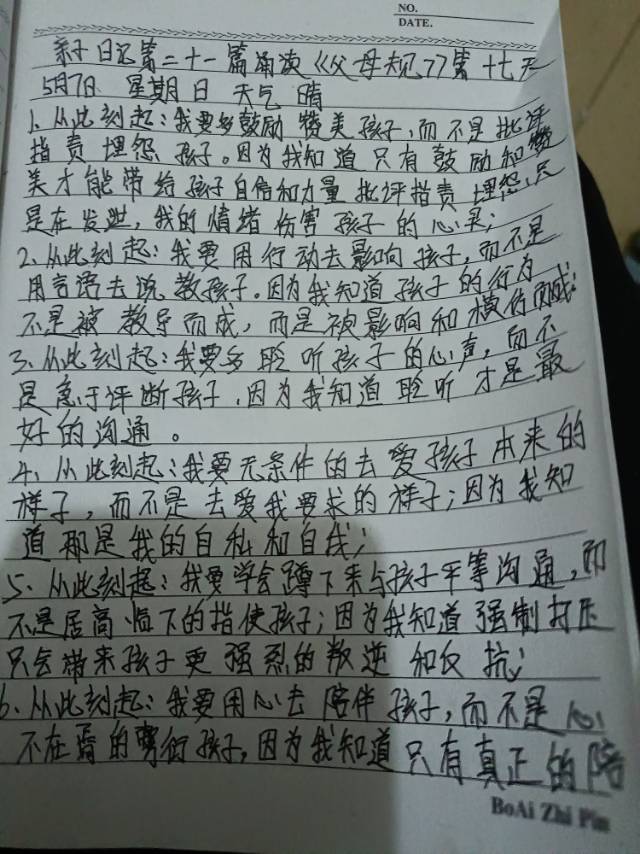 NO.
DATE.
亲子日记第二十一篇诵读《父母规》7第十七天
5月7日 星期日 天气 晴
1、从此刻起:我要多鼓励 赞美孩子,而不是批评
指责埋怨 孩子。因为我知道只有鼓励和赞
美才能带给孩子自信和力量 批评指责 埋怨,只
是在发泄,我的情绪 伤害 孩子的心灵;
2、从此刻起:我要用行动去影响 孩子,而不是
用言语去说教孩子。因为我知道孩子的行为
不是被 教导而成,而是被影响和模仿而成;
3、从此刻起:我要多聆听孩子的心声,而不
是急于评断孩子,因为我知道聆听才是最
好的沟通。
4、从此刻起:我要无条件的去爱孩子本来的
样子,而不是去爱我要求的样子;因为我知
道那是我的自私和自
5、从此刻起:我要学会蹲下来与孩子平等沟通,而
不是居高临下的指使孩子;因为我知道强制打压
只会带来孩子更强烈的叛逆 和反抗;
6、从此刻起:我要用心去陪伴孩子,而不是心
不在焉的敷衍孩子,因为我知道只有真正的陪
BoAi Zhi Pin